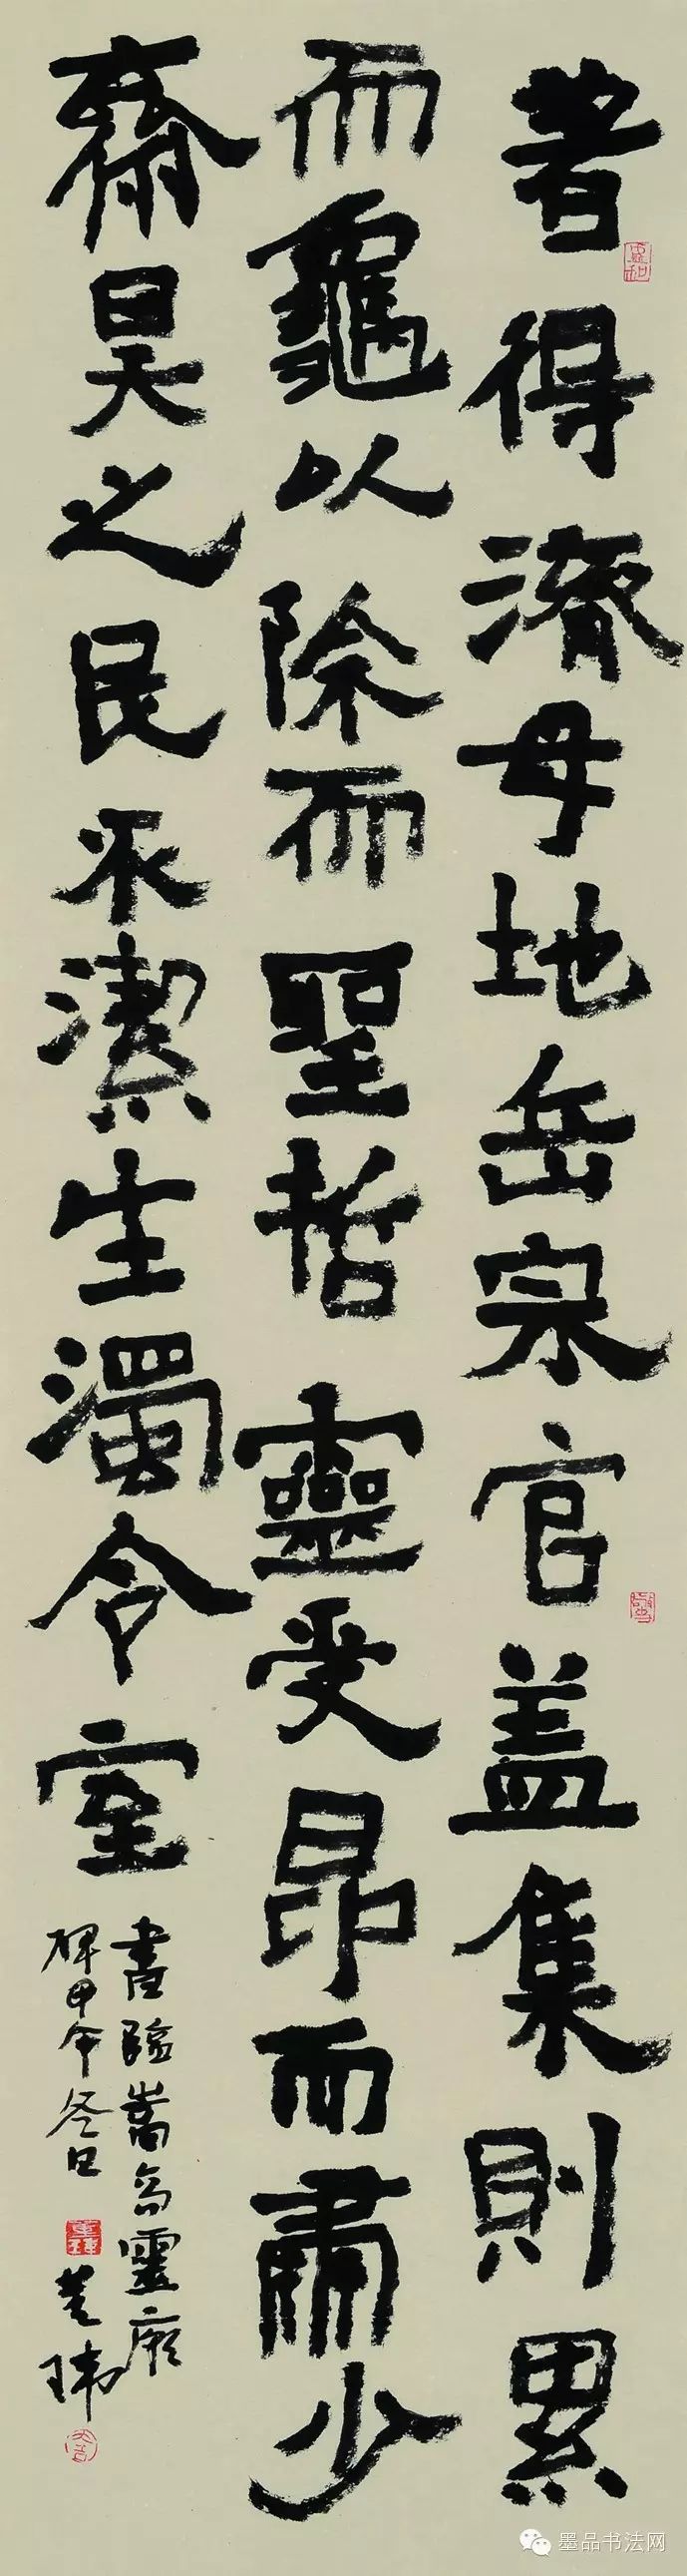 者得濟母地岳宗官盖集則累
而龜以除而聖哲靈受昂而肅少
齋昊之民承潔生濁令室
書臨嵩高靈廟
碑甲午冬日
墨品书法网